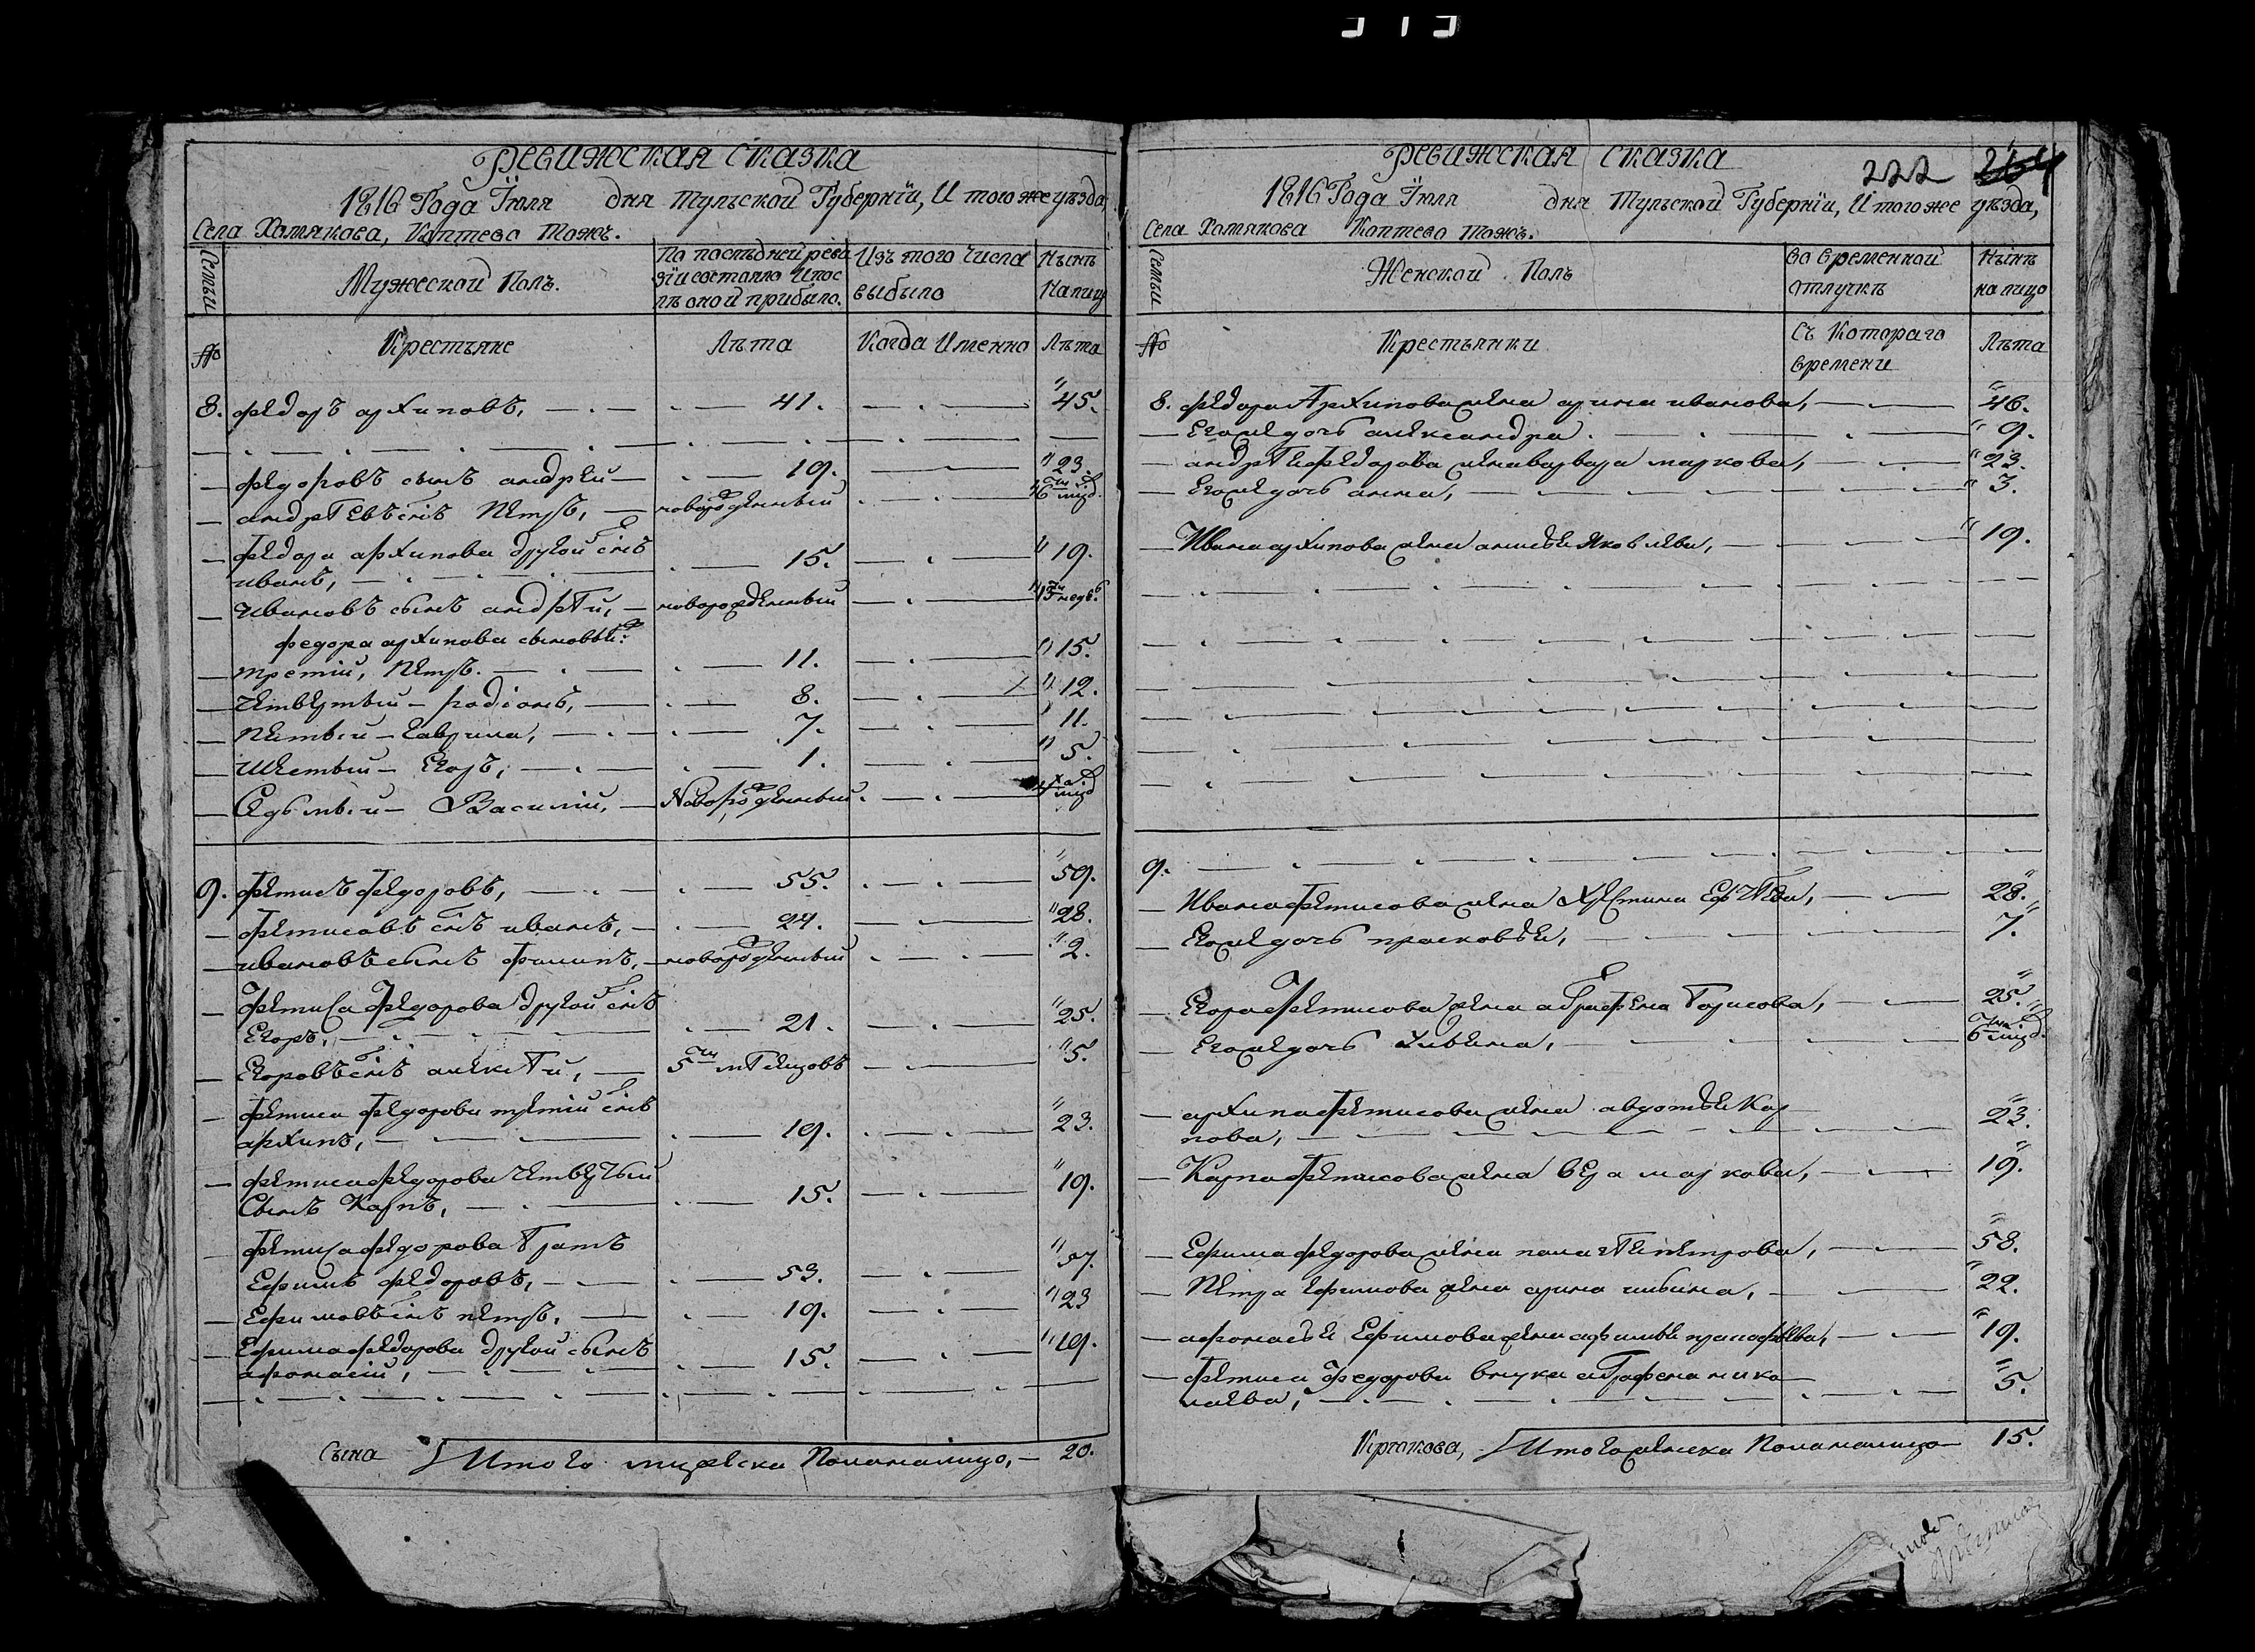 Ревижская сказка
1816 Года Їюля дня Тульской Губернїи, И того же уѣзда,
Села Хомякова, Коптево тожъ.
Семьи
Мужеской Полъ.
По послѣдней реви
зїи состояло И пос
лѣ оной прибыло.
Изъ того Числа
выбыло
Нынѣ
На лицо
№
Крестьяне
Лѣта
Когда Именно
Лѣта
8. Федоръ архиповъ, 41. 45.
Федоровъ сынъ андрей 19. 23.
андрѣевъ снъ Петръ, новорожденный 6 мцо.
Федора архипова другой снъ
иванъ, 15. 19.
ивановъ сынъ андрѣй, новорожденный 13 недѣ.
федора архипова сыновья:
третий, Петръ. 11. 15.
четвертый - родіонъ, 8. 12.
Пятый - гаврила, 7. 11.
шестый - Егоръ, 1. 5.
Седьмый - Василий, Новорожденный. 4 мцо
9. Фетисъ Федоровъ, 55. 59.
Фетисовъ снъ иванъ, 24. 28.
ивановъ сынъ Филипъ, новорожденный 2.
Фетиса Федорова другой снъ
Егоръ, 21. 25.
Егоровъ снъ алексѣй, 5 мѣсяцовъ 5.
Фетиса Федорова третий снъ
архипъ, 19. 23.
Фетиса Федорова четвертый
Сынъ Карпъ, 15. 19.
Фетиса Федорова братъ
Ефимъ Федоровъ, 53. 57.
Ефимовъ снъ петръ, 19. 23
Ефима Федорова другой сынъ
афонасий, 15. 19.
Сына Итого мужеска Пола налицо, 20.
Ревижская сказка
222 264
1816 Года Їюля дня Тульской Губернїи, И того же уѣзда,
Села Хомякова Коптево тожъ.
Семьи
Женской Полъ
Во временной
Отлучкѣ
Нынѣ
на лицо
№
Крестьянки
Съ Котораго
времени
Лѣта
8. Федора Архипова жена арина иванова, 46.
Его же дочь александра. 9.
андрѣя Федорова жена варвара маркова, 23.
Его же дочь анна, 3.
Ивана архипова жена анисья Яковлева, 19.
9.
Ивана Фетисова жена Христина Ефѣева, 28.
Его же дочь прасковья, 7.
Егора Фетисова жена аграфена Борисова, 25.
Его же дочь Ульяна, 6 мцо.
архипа Фетисова жена авдотья Кар
пова, 23.
Карпа Фетисова жена вера маркова, 19.
Ефима Федорова жена палагѣя петрова, 58.
Петра Ефимова жена арина ильина, 22.
афонасья Ефимова жена афимья пранофьева, 19.
Фетиса Федорова внука аграфена нико
лаева, 5.
Крюкова, Итого женска Пола налицо 15.